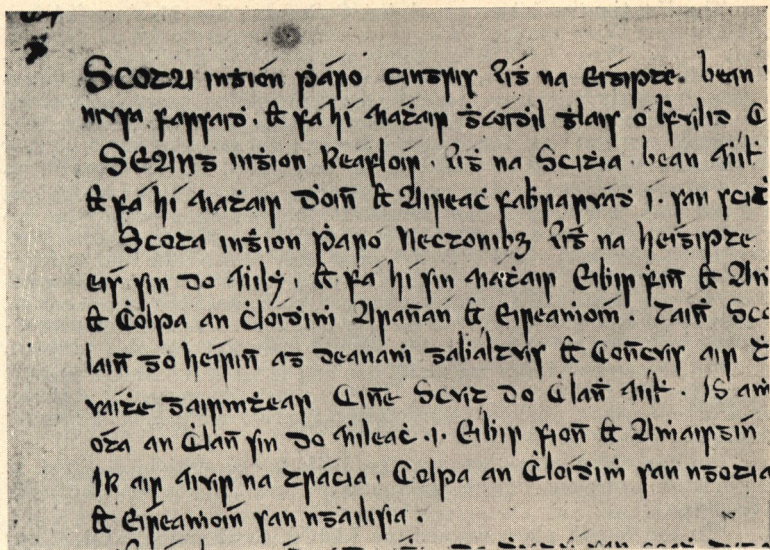 Scota inġion ṗáro cingris Riġ na Eiġipte. bean
niusa farsaid. & fá hí ṁaṫair ġaoiḋil ġlais ó bfuilid C
Seang inġion Reafloir. Riġ na Sciṫia. bean ṁil
& fá hí ṁaṫair Doin̄ & Aireaċ fabraruad .i. san scit
Scota inġion ṗáro Nectonibꝫ Riġ na heiġipte
eis sin do ṁil, & fá hí sin ṁaṫair Eibir ḟin̄ & Am
& Ċolpa an ċloiḋiṁ Aran̄an & Eireaṁoin̄. Tain̄ Sco
lain̄ go heirin̄ ag deanaṁ gaḃáltuis & Con̄cuis air
uaiṫe gairmṫear Cin̄e Scuit do Ċlan̄ ṁil. IS am
óta an Ċlan̄ sin do ṁileaḋ .i. Eiḃir fion̄ & Aṁairgin
IR air ṁuir na trácia. Colpa an Ċloiḋiṁ san ngotia
& Eireaṁoin̄ san ngailisia.